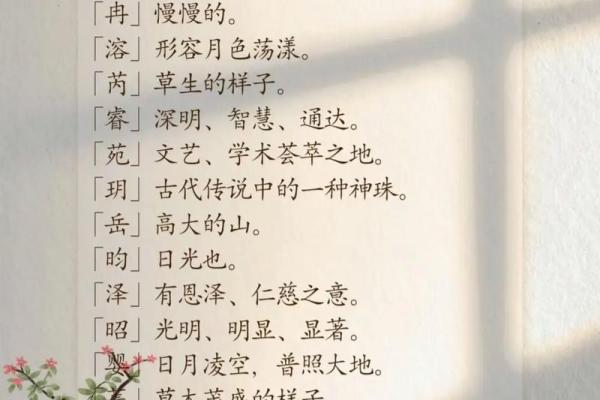 「冉」慢慢的。
「溶」形容月色荡漾。
「芮」草生的样子。
「睿」深明、智慧、通达。
「苑」文艺、学术荟萃之地。
「玥」古代传说中的一种神珠。
「岳」高大的山。
「昀」日光也。
「泽」有恩泽、仁慈之意。
「昭」光明、明显、显著。
日月凌空，普照大地。
草木茂盛的样子